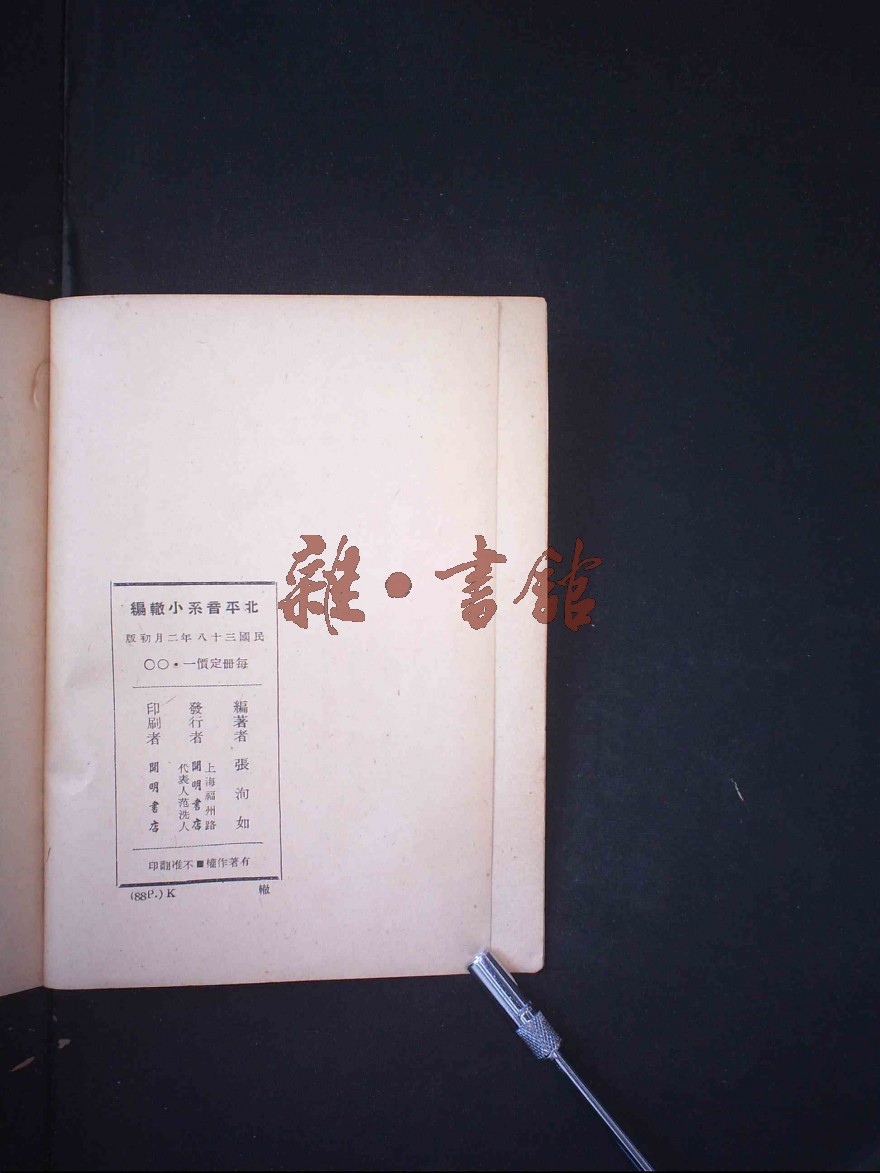 北平音系小轍編
民國三十八年二月初版
每冊定價一·〇〇
編著者 張洵如
發行者 上海福州路
開明書店
代表人范洗人
印刷者 開明書店
有著作權■不准翻印
(88P.) K
轍
雜·書館